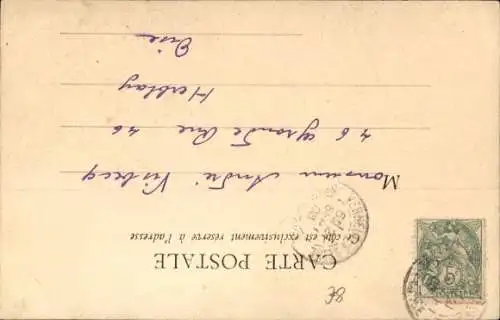 CARTE POSTALE
Ce côté est exclusivement réservé à l'adresse
Monsieur André
46 Grande Rue 46
Herblay
Oise
5
8E